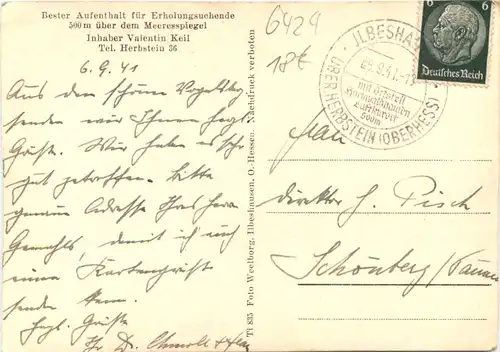 Bester Aufenthalt für Erholungsuchende
500 m über dem Meeresspiegel
Inhaber Valentin Keil
Tel. Herbstein 36
6.9.41
Aus dem schönen Vogelsbg.
senden wir Ihnen herzl.
Grüße. Wir haben es sehr
gut getroffen. Bitte
genaue Adresse Ihres Herrn
Gemahls, damit ich auch
einen Kartengruß
senden kann.
Herzl. Grüße
Ihr Dr.
Tl 835 Foto Weeborg, Ilbeshausen, O.-Hessen. Nachdruck verboten
6429
18€
ILBESHAUSEN
ÜBER HERBSTEIN (OBERHESS)
mit Ortsteil
Hochwaldhausen
Luftkurort
500m
6
Deutsches Reich
Frau
Direktor H. Pisch
Schönberg/Taunus